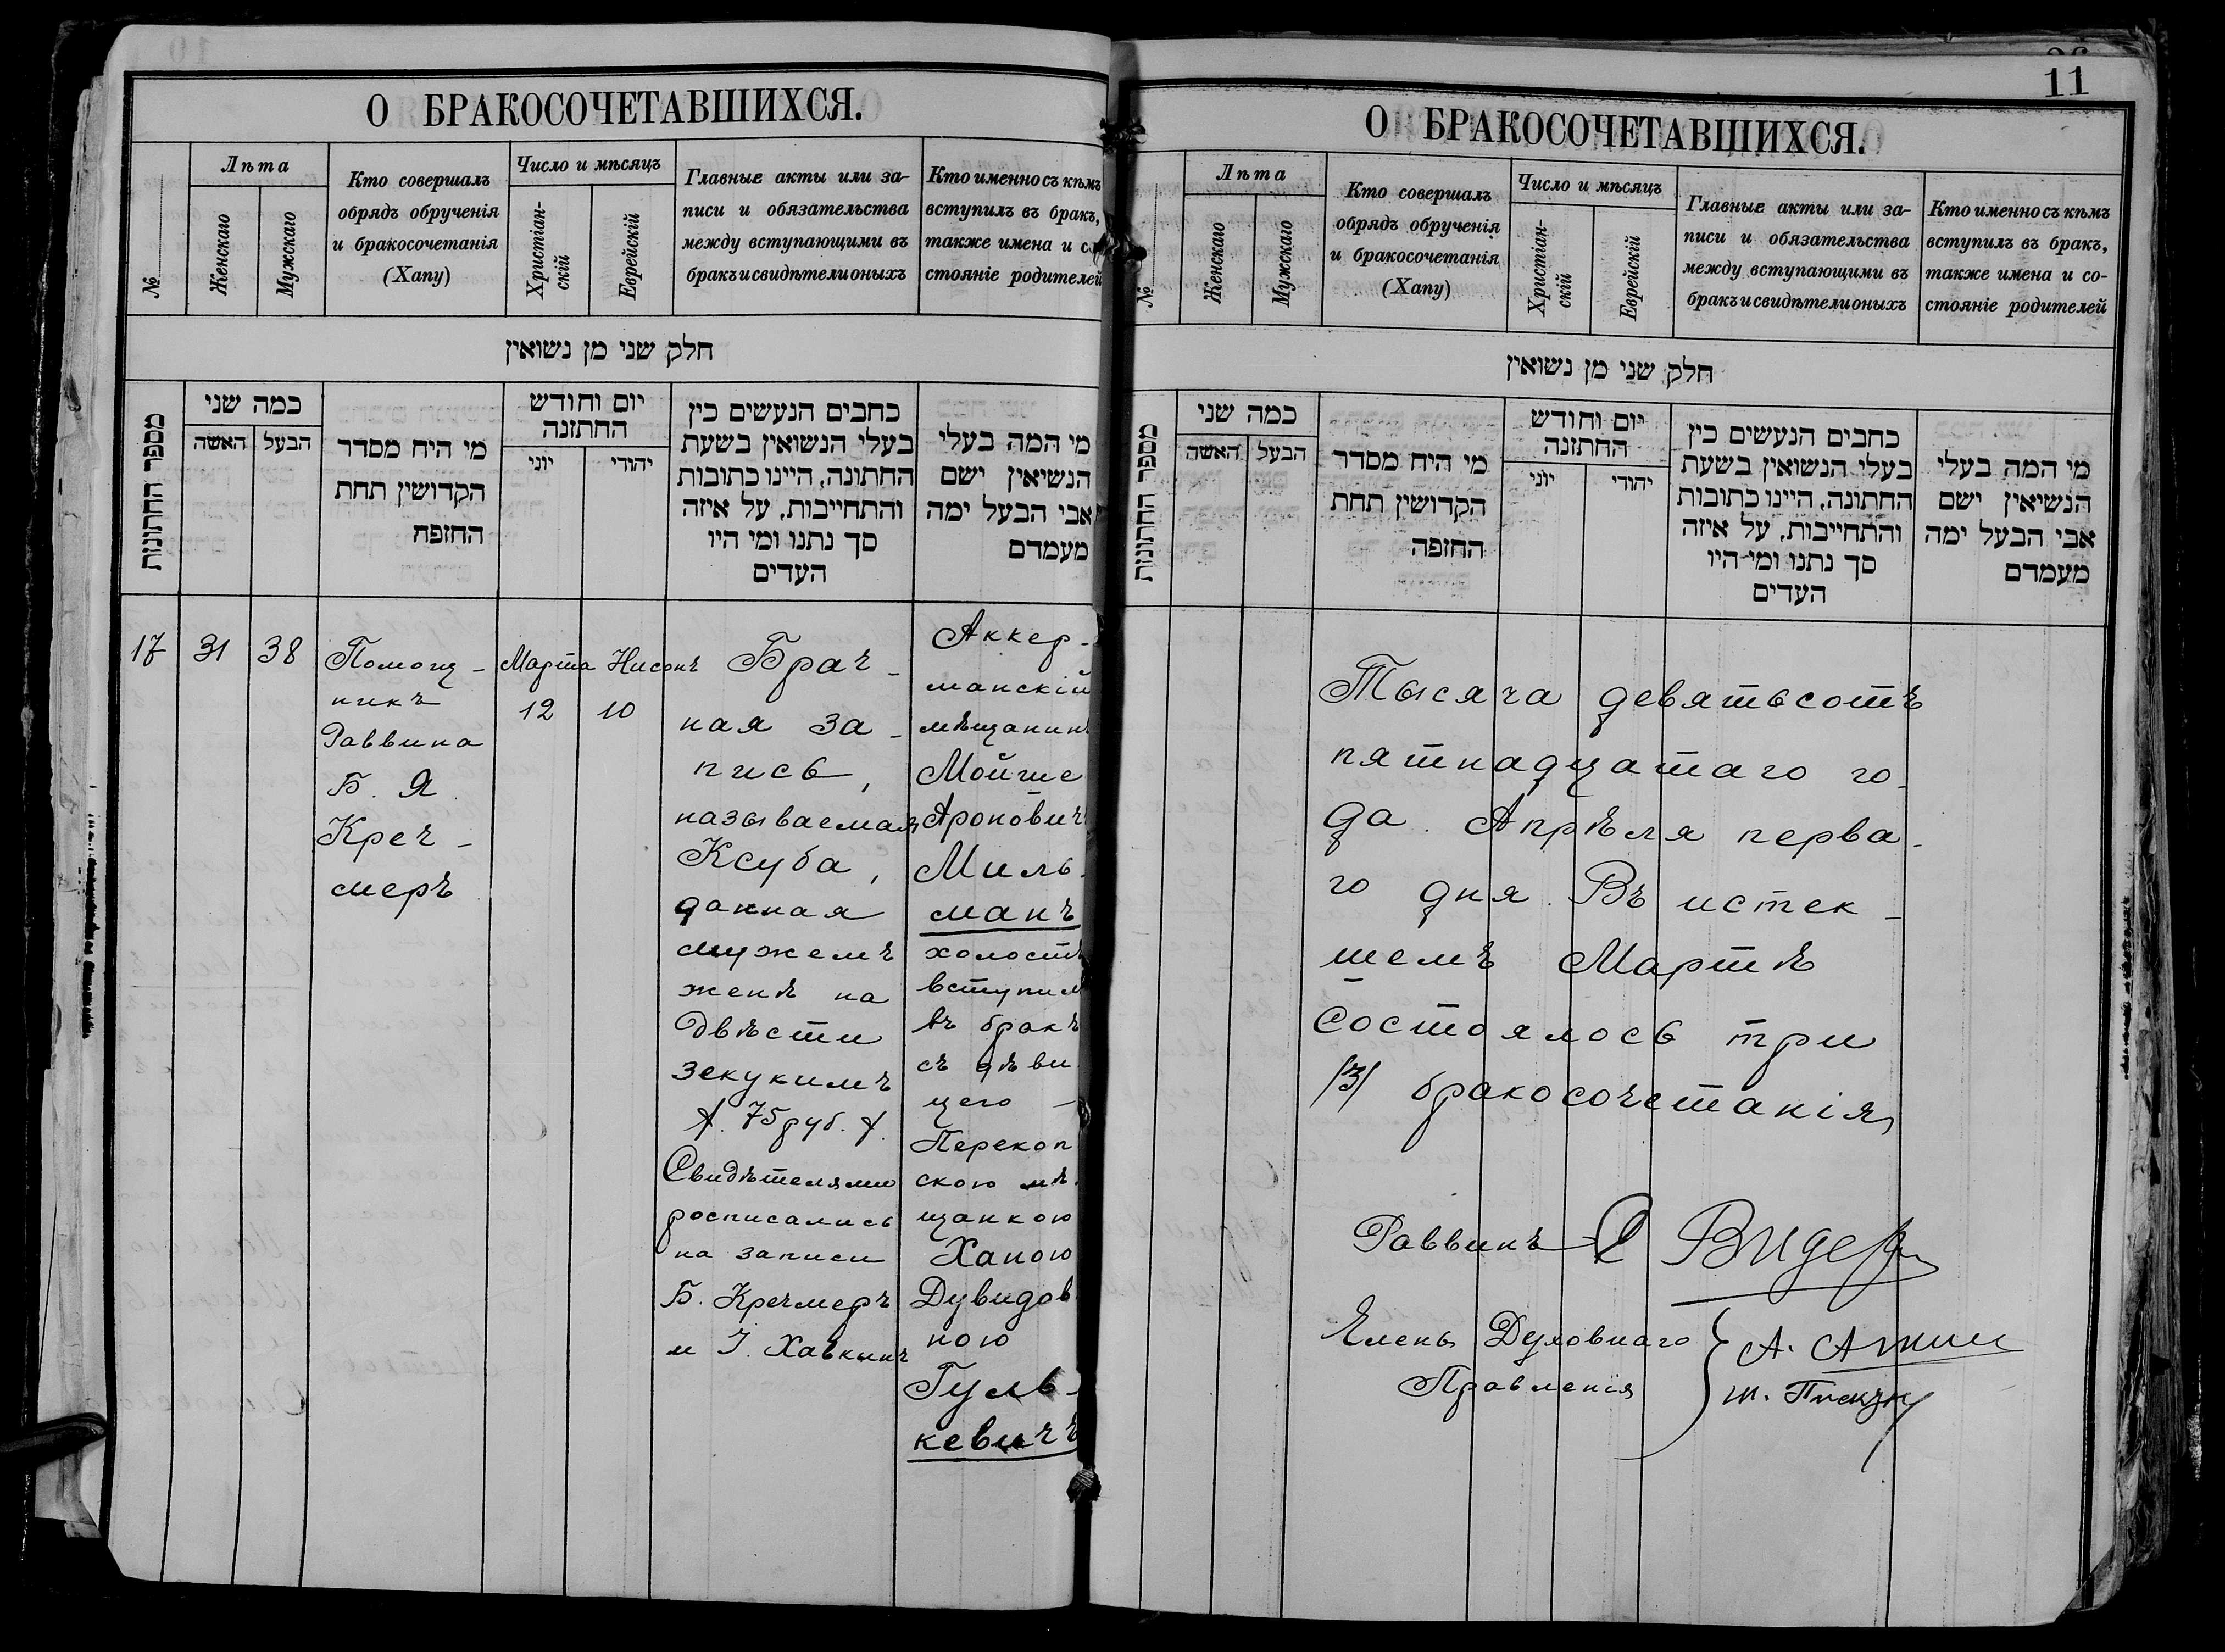 О БРАКОСОЧЕТАВШИХСЯ.
№
Лѣта
Женскаго
Мужскаго
Кто совершалъ
обрядъ обрученія
и бракосочетанія
(Хапу)
Число и мѣсяцъ
Христіан-
скій
Еврейскій
Главные акты или за-
писи и обязательства
между вступающими въ
бракъ и свидѣтели оныхъ
Кто именно съ кѣмъ
вступилъ въ бракъ,
также имена и с
стояніе родителей
חלק שני מן נשואין
מספר החתונות
כמה שני
האשה
הבעל
מי היח מסדר
הקדושין תחת
החופח
יום וחודש
החתונה
יוני
יהודי
כחבים הנעשים כין
בעלי הנשואין בשעת
החתונה, היינו כתובות
והתחייבות, על איזה
סך נתנו ומי היו
העדים
מי המה בעלי
הנשיאין ישם
אבי הבעל ימה
מעמדם
17
31
38
Помощ-
никъ
Раввина
Б. Я.
Креч-
меръ
Марта
12
Нисонъ
10
Брач-
ная за-
пись,
называемая
Ксуба,
данная
мужемъ
женѣ на
двѣсти
зекукимъ
75 руб.
Свидѣтелями
росписались
на записи
Б. Кречмеръ
и І. Хавкинъ
Аккер-
манскій
мѣщанинъ
Мойше
Ароновичъ
Миль-
манъ
холостъ
вступил
въ бракъ
съ дѣви
цею -
Перекоп
скою мѣ
щанкою
Ханою
Дувидов
ною
Гуль-
кевичъ
11
О БРАКОСОЧЕТАВШИХСЯ.
№
Лѣта
Женскаго
Мужскаго
Кто совершалъ
обрядъ обрученія
и бракосочетанія
(Хапу)
Число и мѣсяцъ
Христіан-
скій
Еврейскій
Главные акты или за-
писи и обязательства
между вступающими въ
бракъ и свидѣтели оныхъ
Кто именно съ кѣмъ
вступилъ въ бракъ,
также имена и со-
стояніе родителей
חלק שני מן נשואין
מספר החתונות
כמה שני
האשה
הבעל
מי היח מסדר
הקדושין תחת
החופה
יום וחודש
החתונה
יוני
יהודי
כחבים הנעשים כין
בעלי הנשואין בשעת
החתונה, היינו כתובות
והתחייבות, על איזה
סך נתנו ומי היו
העדים
מי המה בעלי
הנשיאין ישם
אבי הבעל ימה
מעמדם
Тысяча девятьсотъ
пятнадцатаго го-
да. Апрѣля перва-
го дня. Въ истек-
шемъ Мартѣ
состоялось три
/3/ бракосочетанія
Раввинъ Видер
Члены Духовнаго
Правленія